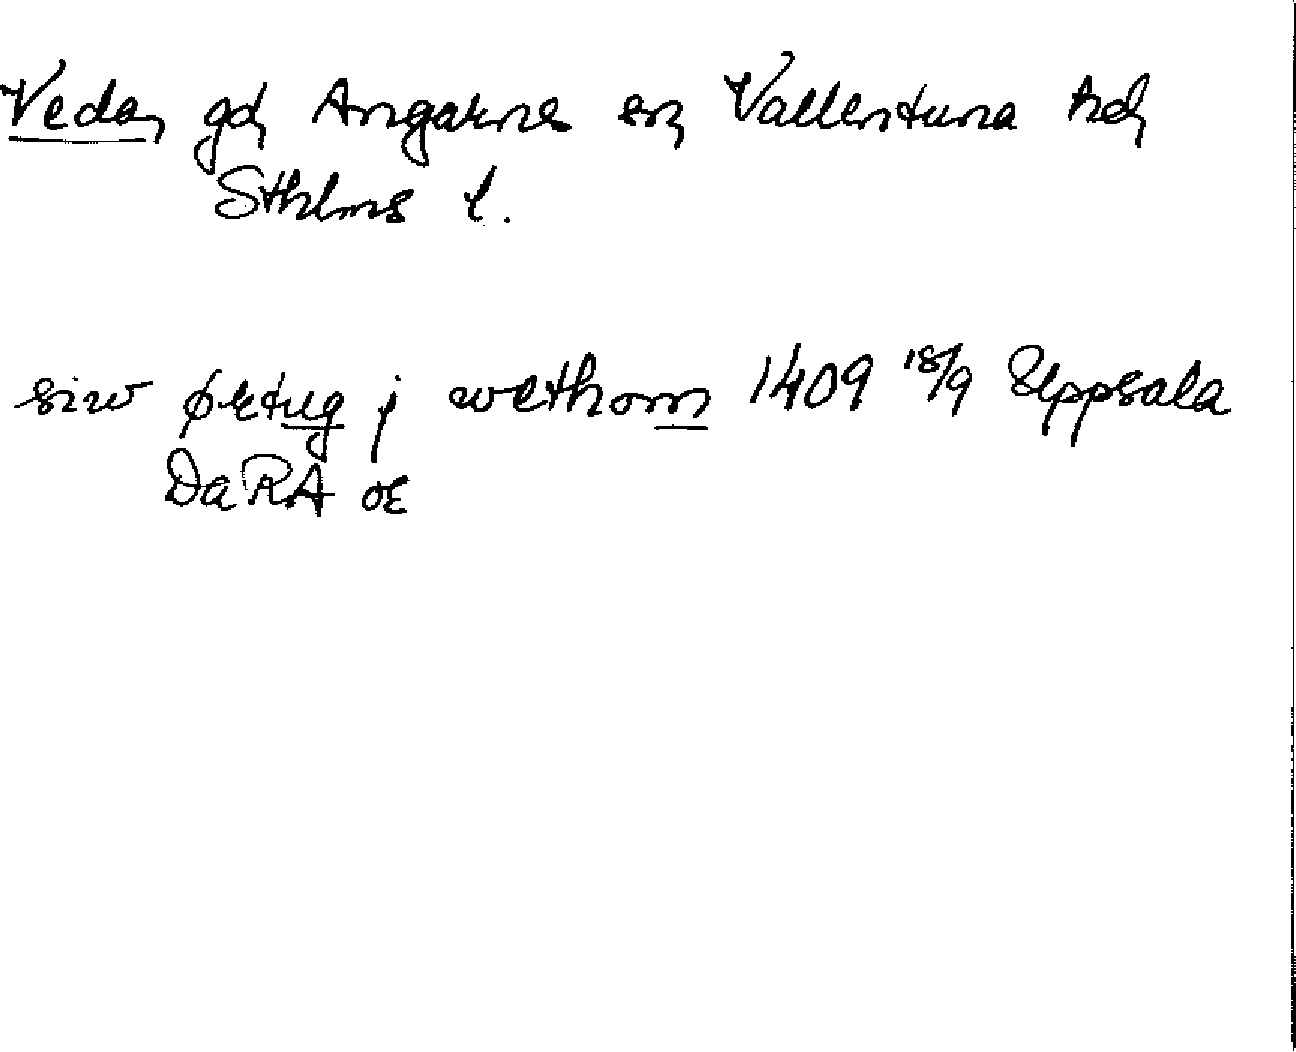 Veda, gd, Angarns sn, Vallentuna hd,
Sthlms l.
siw ørtug j wethom 1409 18/9 Uppsala
DaRA or